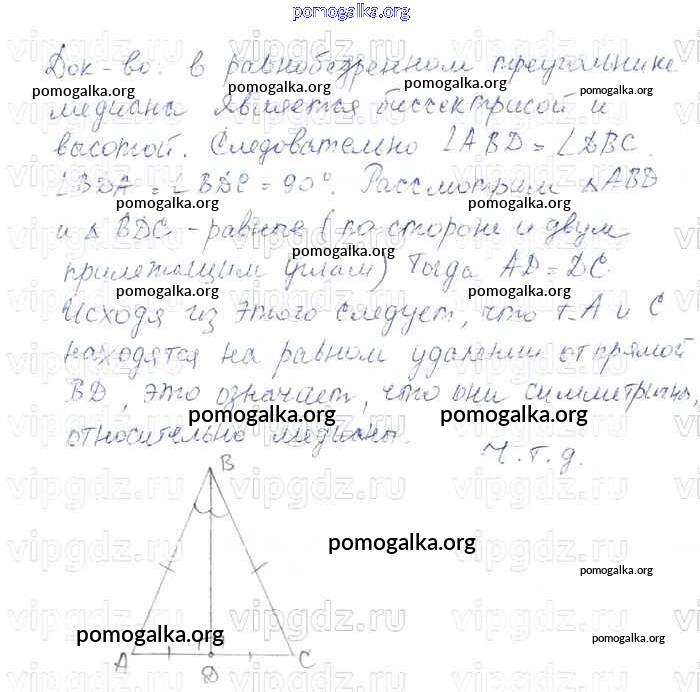 pomogalka.org
Док-во: в равнобедренном треугольнике
pomogalka.org pomogalka.org pomogalka.org
медиана является биссектрисой и
высотой. Следовательно ∠ABD = ∠DBC.
pomogalka.org pomogalka.org
∠BDA = ∠BDC = 90°. Рассмотрим △ABD
pomogalka.org pomogalka.org
и △BDC - равные (по стороне и двум
pomogalka.org
прилежащим углам) Тогда AD = DC.
pomogalka.org pomogalka.org
Исходя из этого следует, что т. A и C
находятся на равном удалении от прямой
BD, это означает, что они симметричны,
pomogalka.org pomogalka.org
относительно медианы.
Ч.т.д.
B
pomogalka.org
pomogalka.org
pomogalka.org
pomogalka.org
A D C
vipgdz.ru vipgdz.ru vipgdz.ru